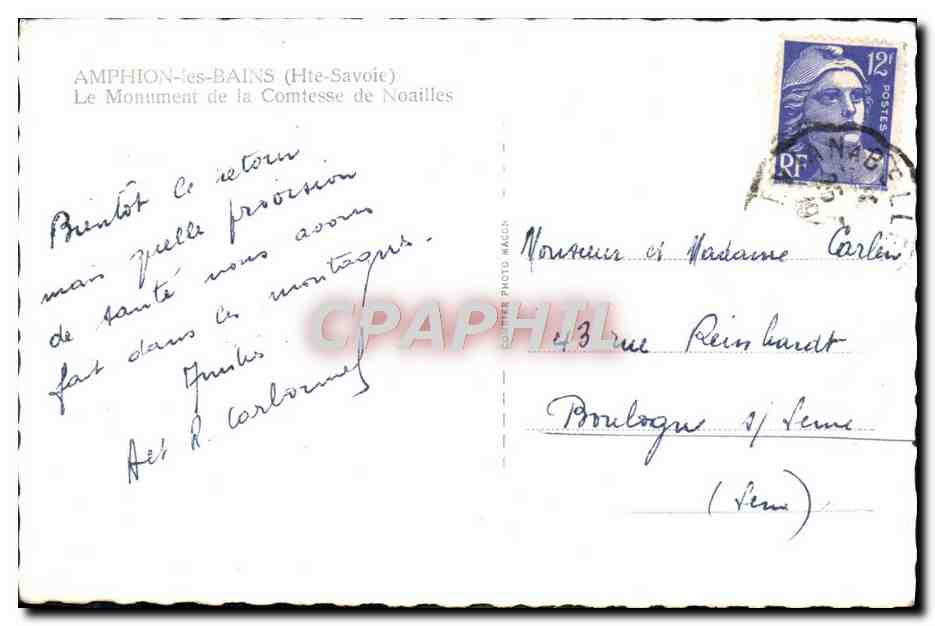 AMPHION-les-BAINS (Hte-Savoie)
Le Monument de la Comtesse de Noailles
12F
POSTES
RF
Bientôt le retour
mais quelle provision
de santé nous avons
fait dans les montagnes.
Amitiés
A et R. Carbonnel
COMBIER PHOTO MACON
CPAPHIL
Monsieur et Madame Carlin
43 rue Reinhardt
Boulogne s/ Seine
(Seine)